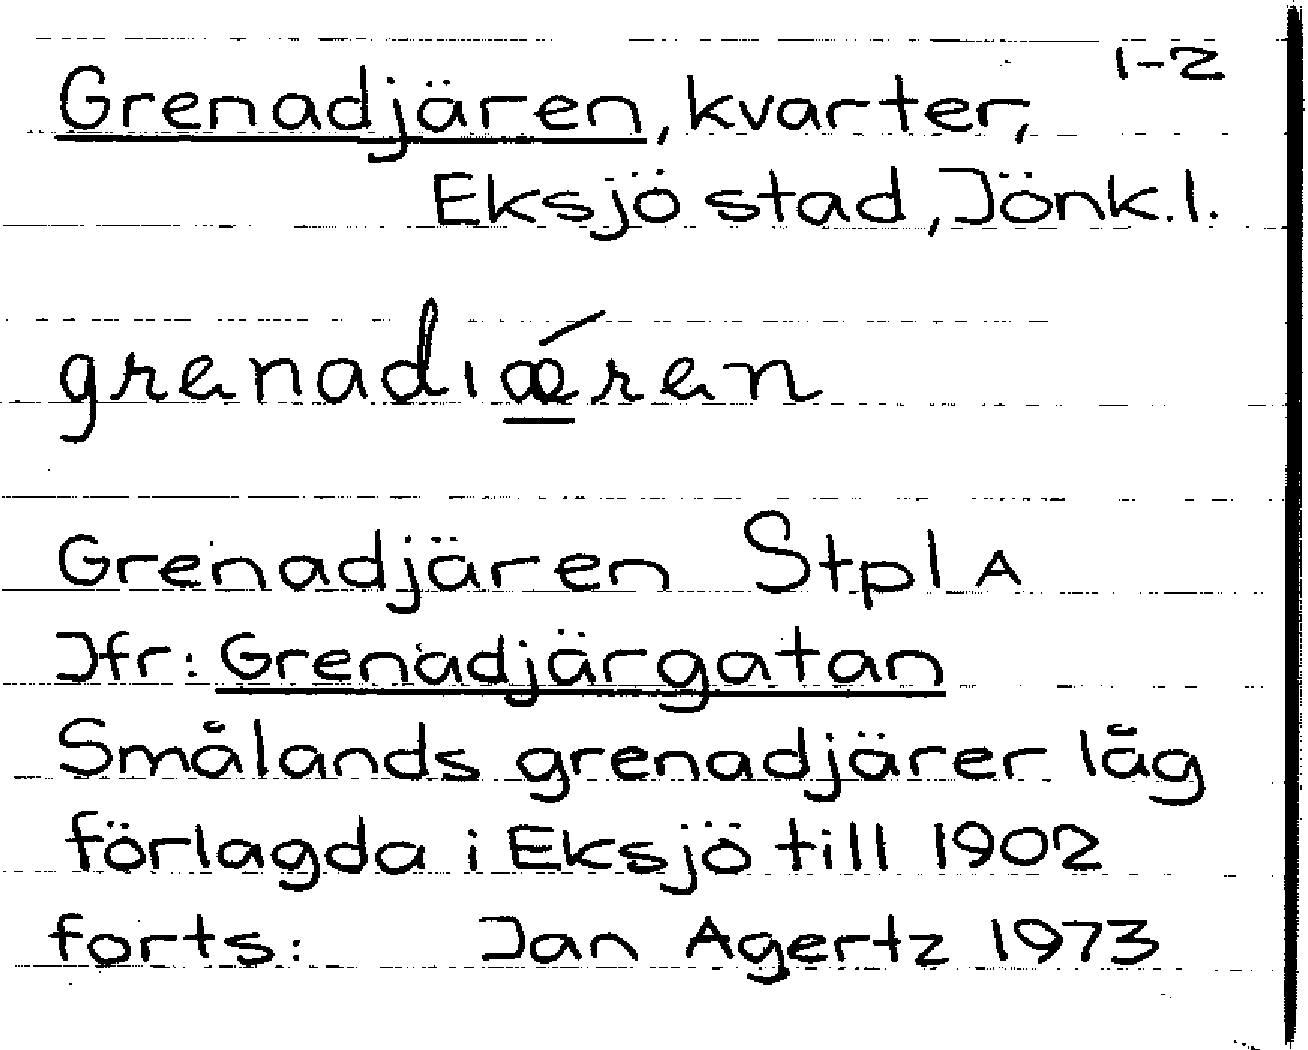 1-2
Grenadjären, kvarter,
Eksjö stad, Jönk.l.
grenadıǽren
Grenadjären Stpl A
Jfr: Grenadjärgatan
Smålands grenadjärer låg
förlagda i Eksjö till 1902
forts: Jan Agertz 1973